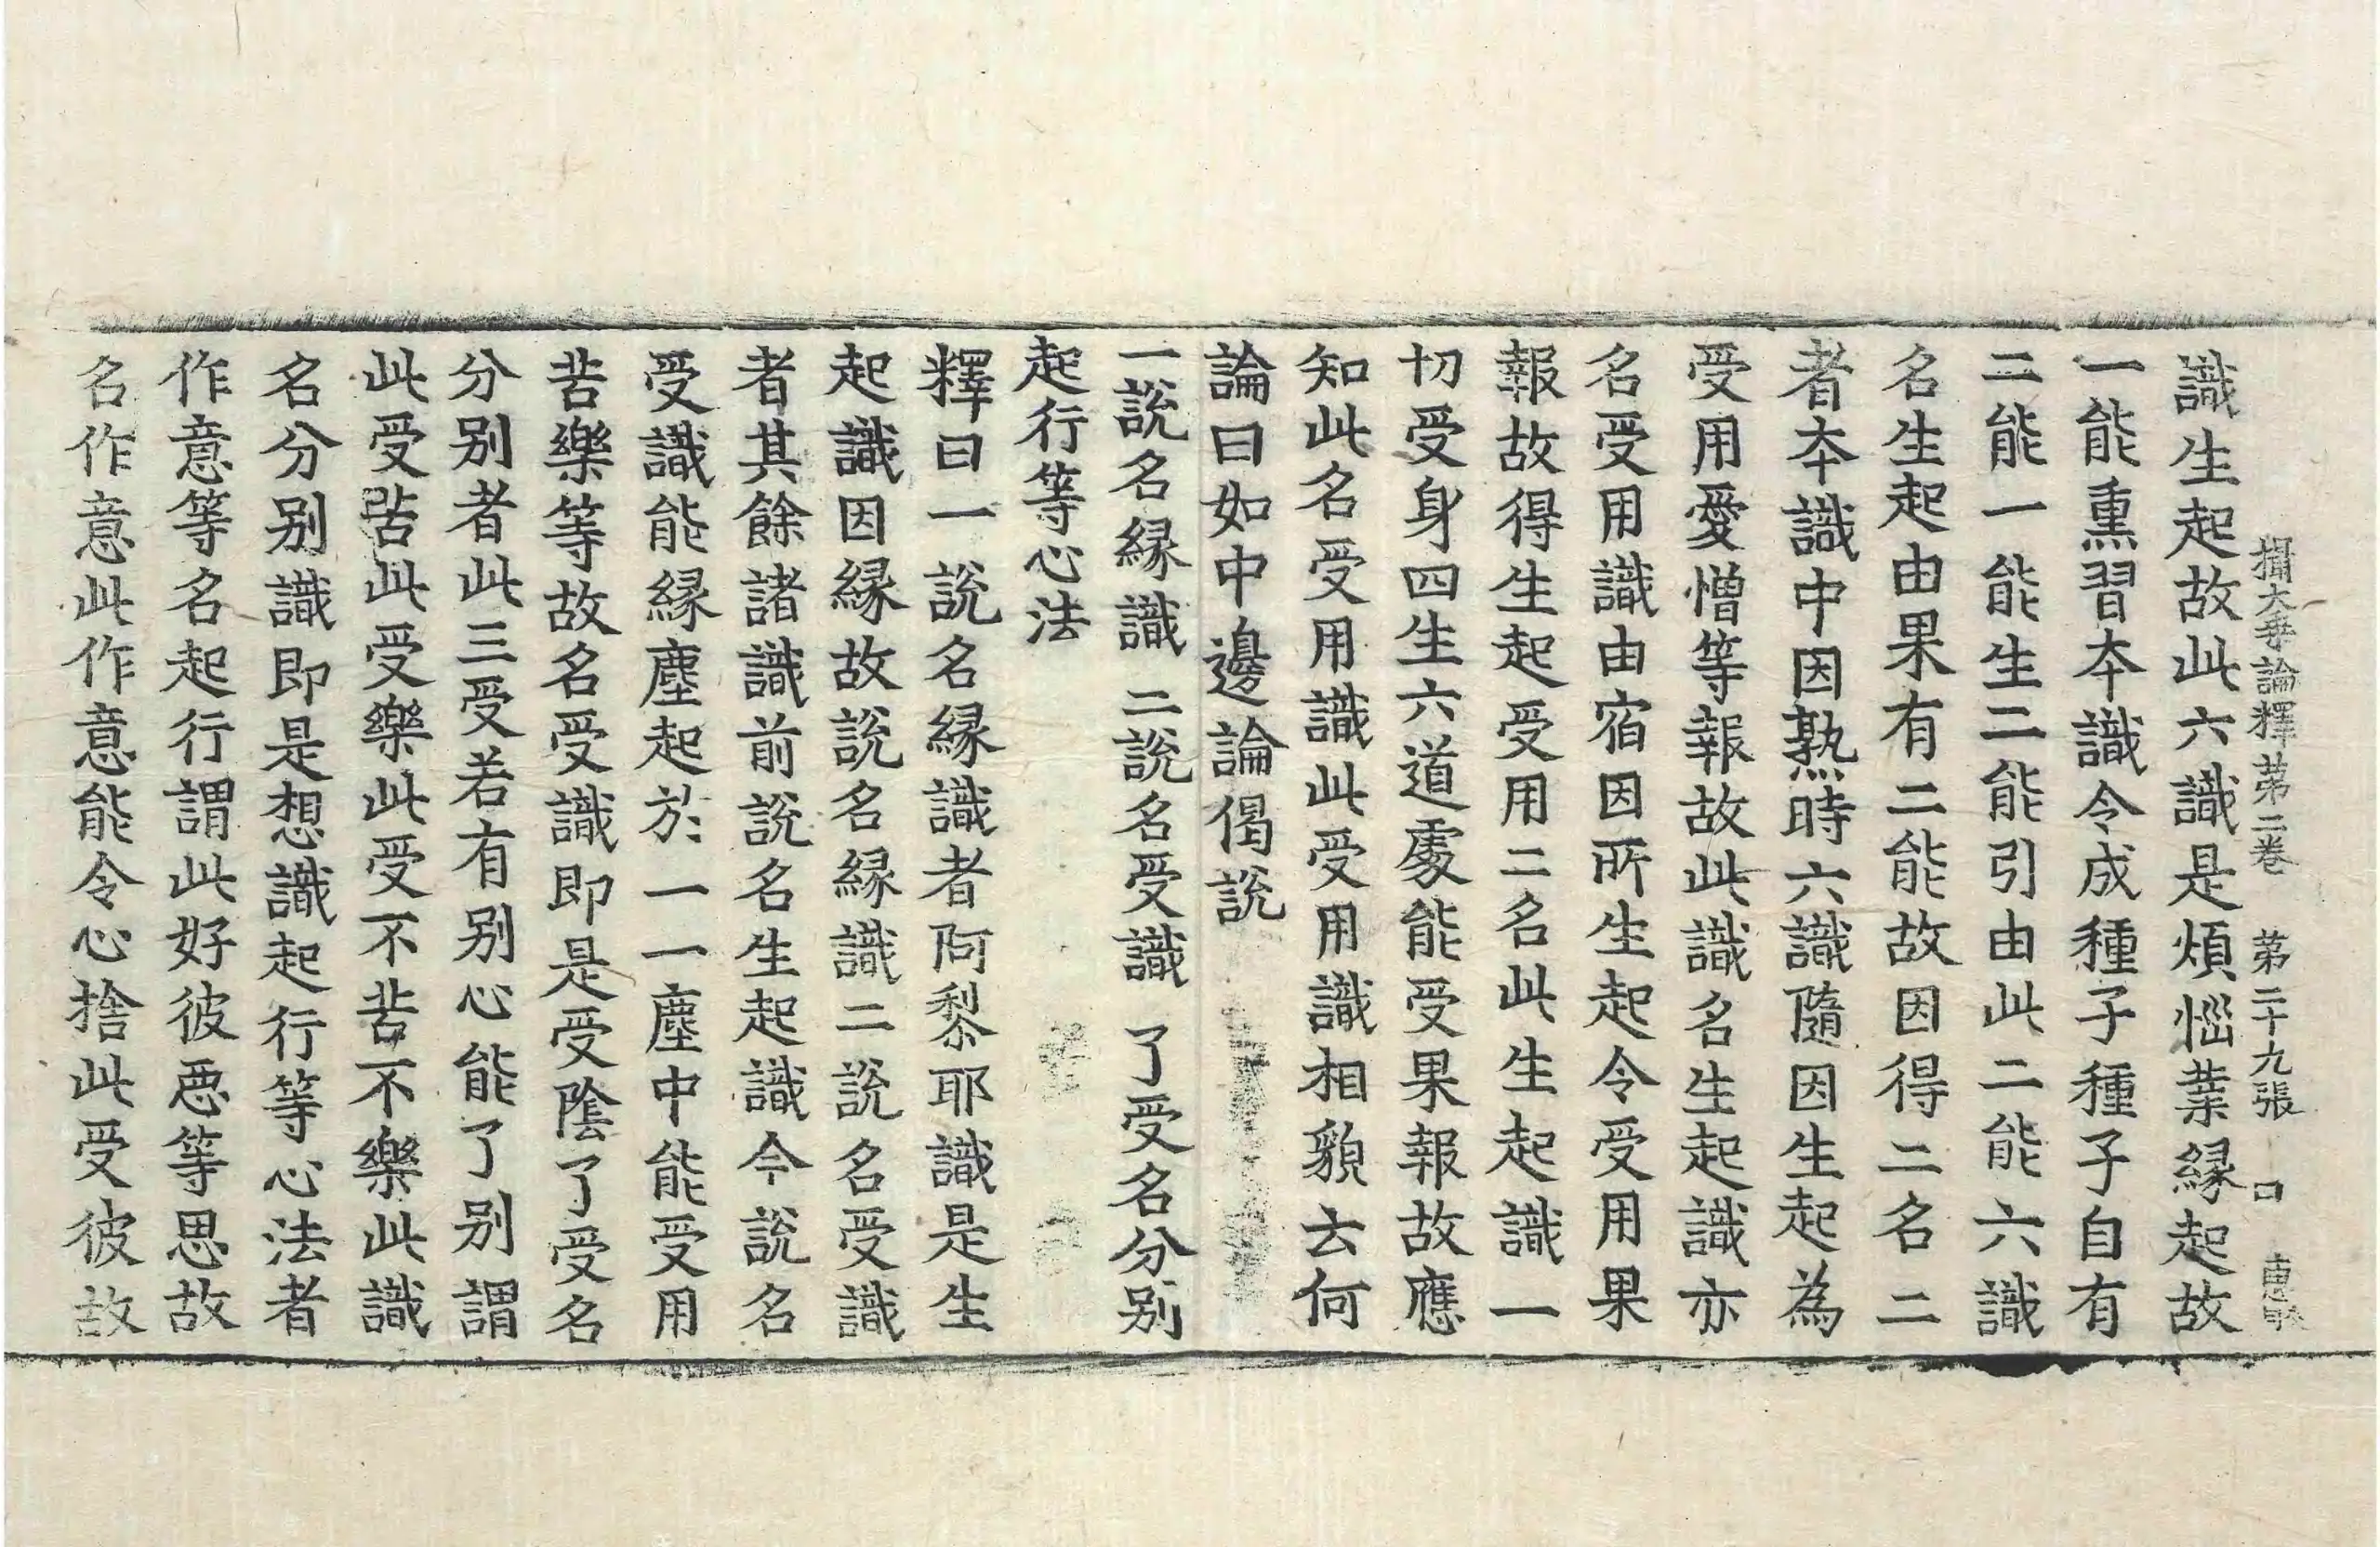 攝大乗論釋苐二巻　苐二十九張　口
識生起故此六識是煩惱業縁起故
一能熏習夲識令成種子種子自有
二能一能生二能引由此二能六識
名生起由果有二能故因得二名二
者夲識中因熟時六識隨因生起為
受用愛憎等報故此識名生起識亦
名受用識由宿因所生起令受用果
報故得生起受用二名此生起識一
切受身四生六道處能受果報故應
知此名受用識此受用識相貌云何
論曰如中邊論偈說
一說名縁識　二說名受識　了受名分別
起行等心法
釋曰一說名縁識者阿黎耶識是生
起識因縁故說名縁識二說名受識
者其餘諸識前說名生起識今說名
受識能縁塵起於一一塵中能受用
苦樂等故名受識即是受陰了受名
分別者此三受若有別心能了別謂
此受苦此受樂此受不苦不樂此識
名分別識即是想識起行等心法者
作意等名起行謂此好彼惡等思故
名作意此作意能令心捨此受彼故